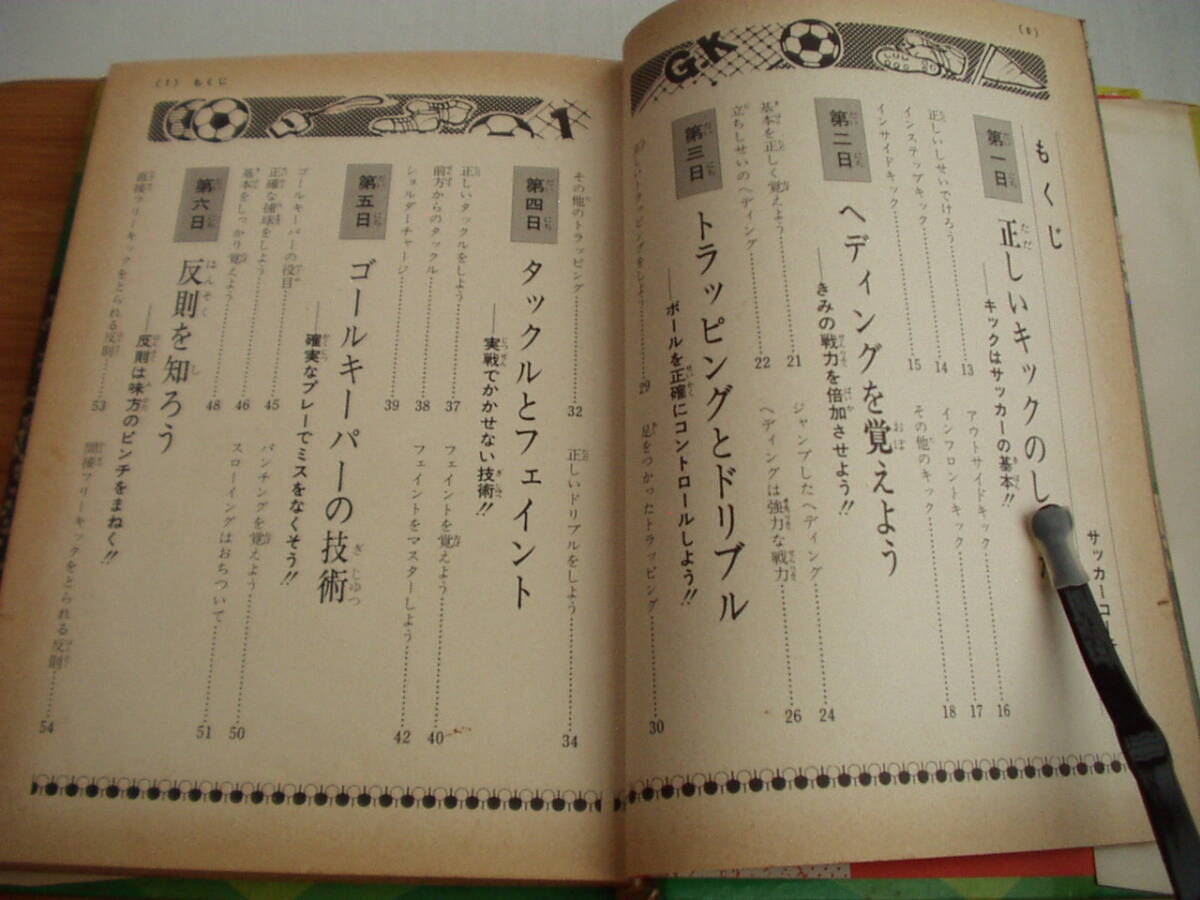 (6)
G.K
もくじ
サッカーコー
第一日 正しいキックのし
――キックはサッカーの基本!!
正しいしせいでけろう……13
インステップキック……14
インサイドキック……15
アウトサイドキック……16
インフロントキック……17
その他のキック……18
第二日 ヘディングを覚えよう
――きみの戦力を倍加させよう!!
基本を正しく覚えよう……21
立ちしせいのヘディング……22
ジャンプしたヘディング……24
ヘディングは強力な戦力……26
第三日 トラッピングとドリブル
――ボールを正確にコントロールしよう!!
正しいトラッピングをしよう……29
足をつかったトラッピング……30
(7) もくじ
1
その他のトラッピング……32
正しいドリブルをしよう……34
第四日 タックルとフェイント
――実戦でかかせない技術!!
正しいタックルをしよう……37
前方からのタックル……38
ショルダーチャージ……39
フェイントを覚えよう……40
フェイントをマスターしよう……42
第五日 ゴールキーパーの技術
――確実なプレーでミスをなくそう!!
ゴールキーパーの役目……45
正確な捕球をしよう……46
基本をしっかり覚えよう……48
パンチングを覚えよう……50
スローイングはおちついて……51
第六日 反則を知ろう
――反則は味方のピンチをまねく!!
直接フリーキックをとられる反則……53
間接フリーキックをとられる反則……54